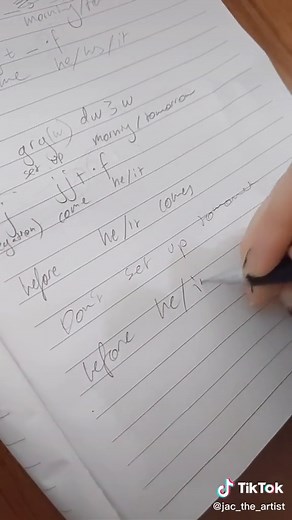 morning/to
t - . f
come he/hs/it
grg(w) dw3w
set up morning/tomorrow
j jjt . f
come he/it
before he/it comes
Don't set up tomorrow
before he/it
TikTok
@jac_the_artist